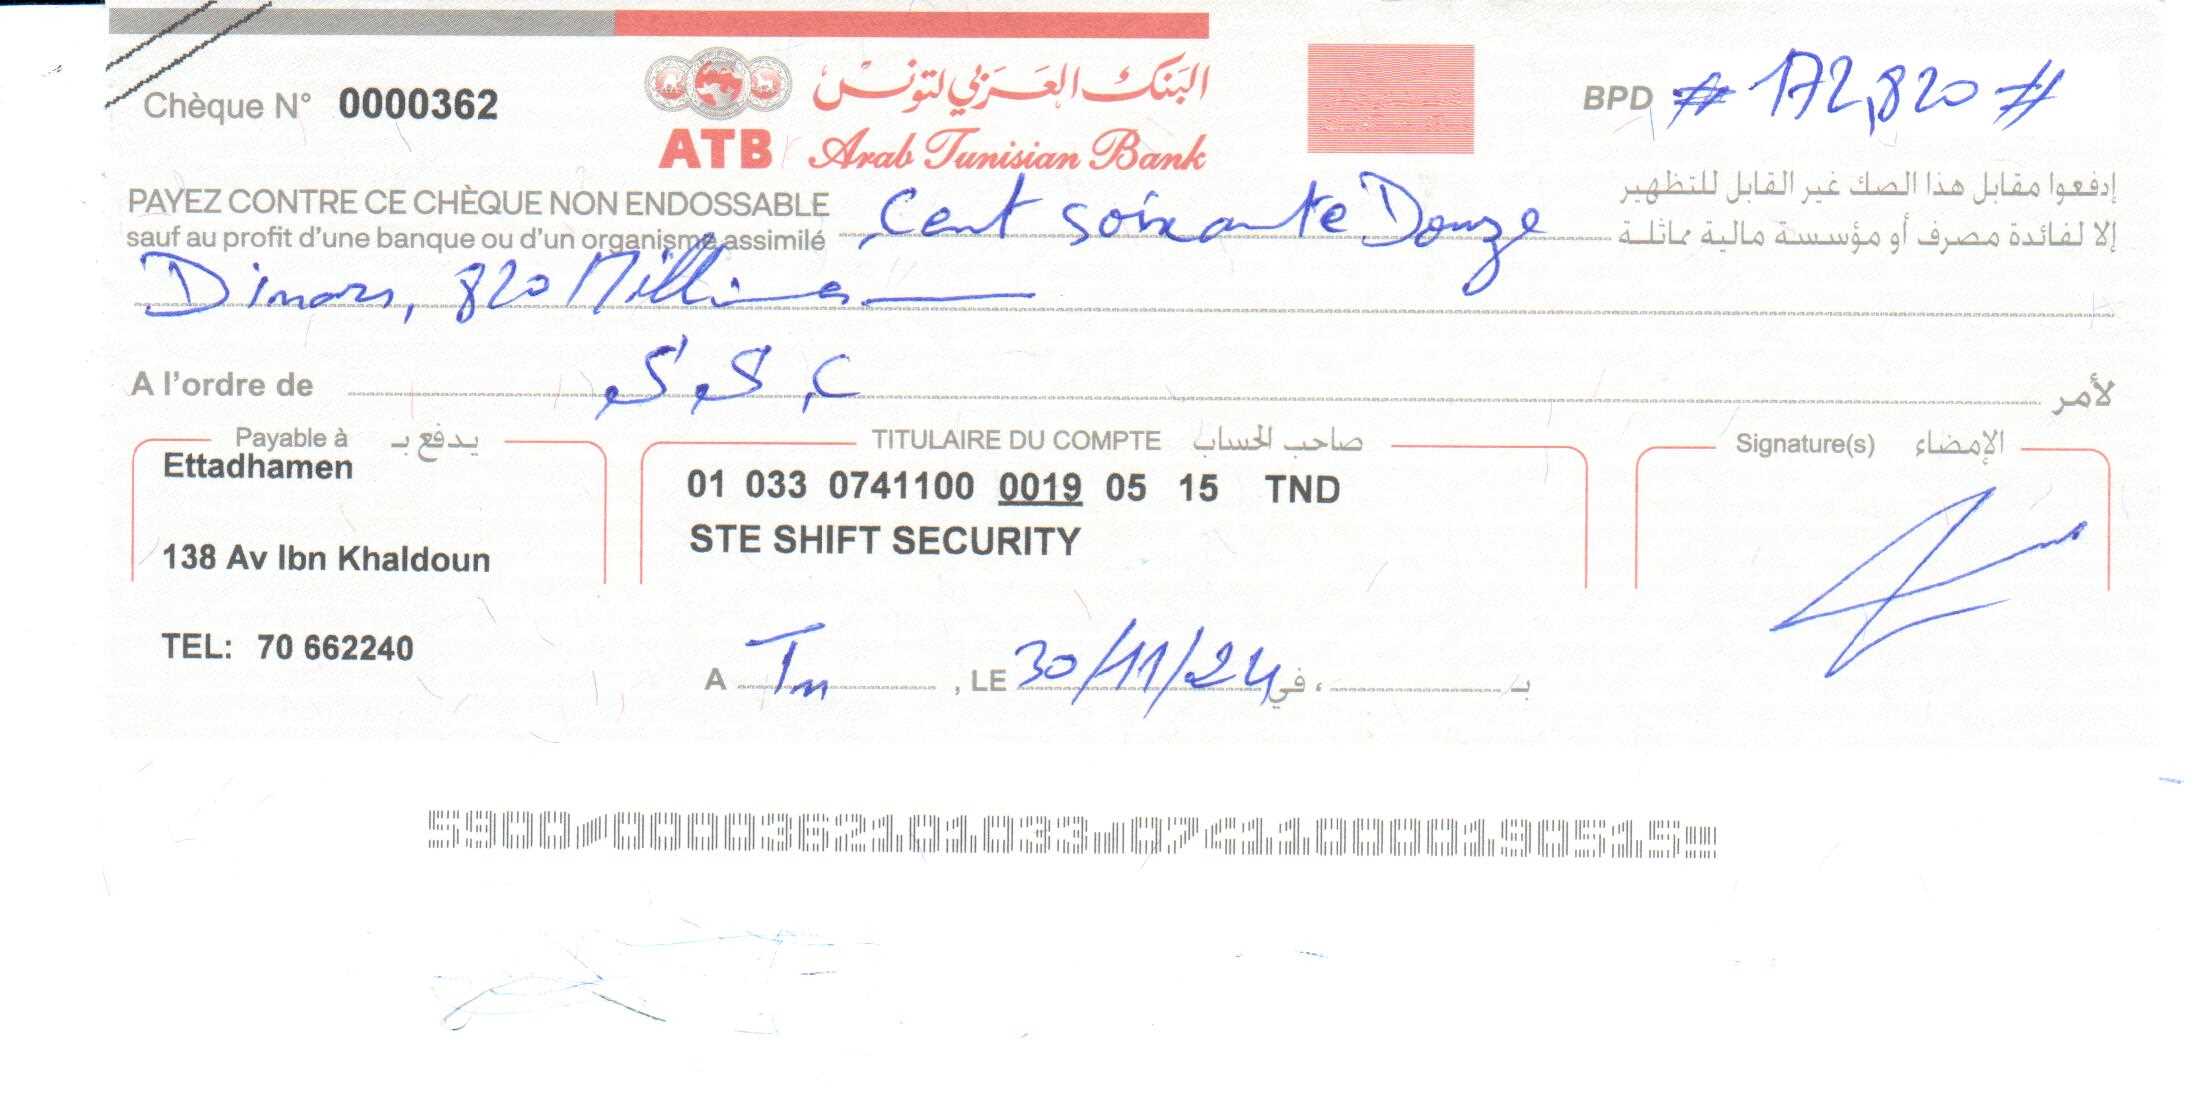 Chèque N° 0000362
البنك العربي لتونس
ATB Arab Tunisian Bank
BPD # 172,820 #
PAYEZ CONTRE CE CHÈQUE NON ENDOSSABLE
sauf au profit d'une banque ou d'un organisme assimilé
Cent soixante Douze
إدفعوا مقابل هذا الصك غير القابل للتظهير
إلا لفائدة مصرف أو مؤسسة مالية مماثلة
Dinars, 820 Millimes
A l'ordre de S.S.C لأمر
Payable à يدفع بـ
Ettadhamen
138 Av Ibn Khaldoun
TEL: 70 662240
TITULAIRE DU COMPTE صاحب الحساب
01 033 0741100 0019 05 15 TND
STE SHIFT SECURITY
Signature(s) الإمضاء
A Tn , LE 30/11/24 في ، بـ
5900 0000362101033 074110000190515